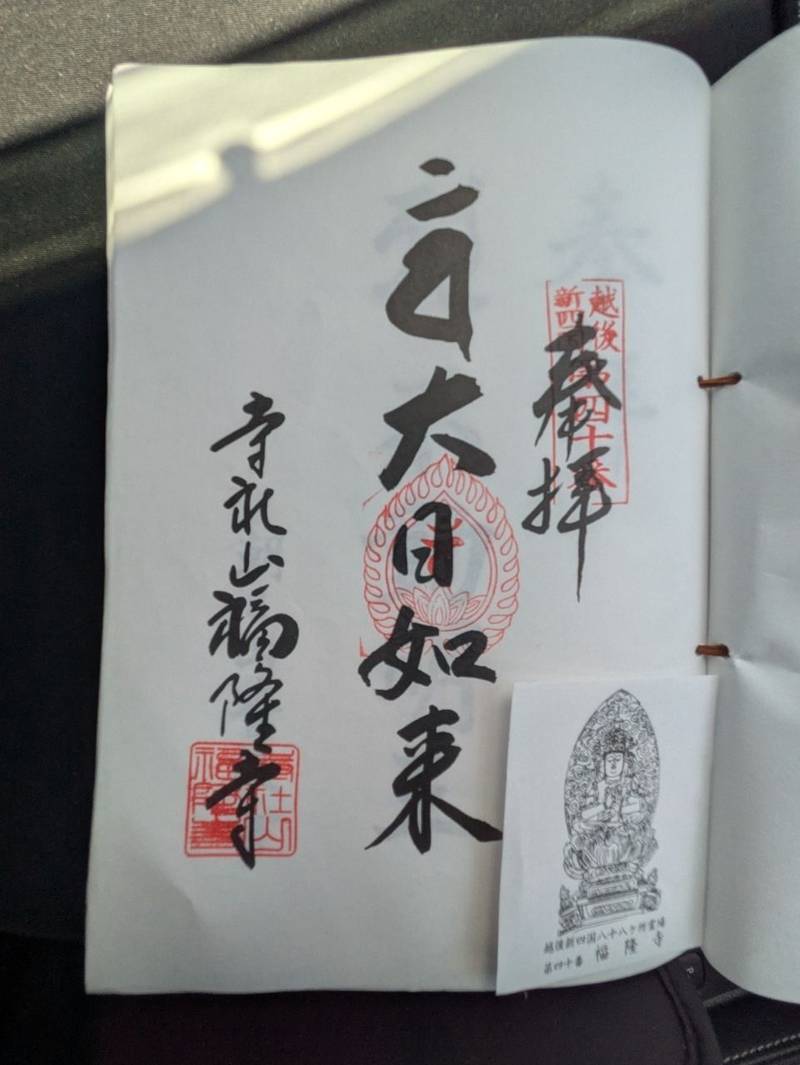 越後
新四国
第四十番
奉拝
大日如来
寺社山福隆寺
寺社山
福隆寺
越後新四国八十八ヶ所霊場
第四十番 福隆寺